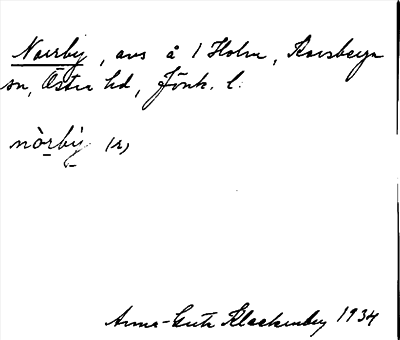 Norrby, avs å 1 Holm, Korsberga
sn, Östra hd, Jönk. l.
nòrby (r)
Anna-Greta Klackenberg 1934